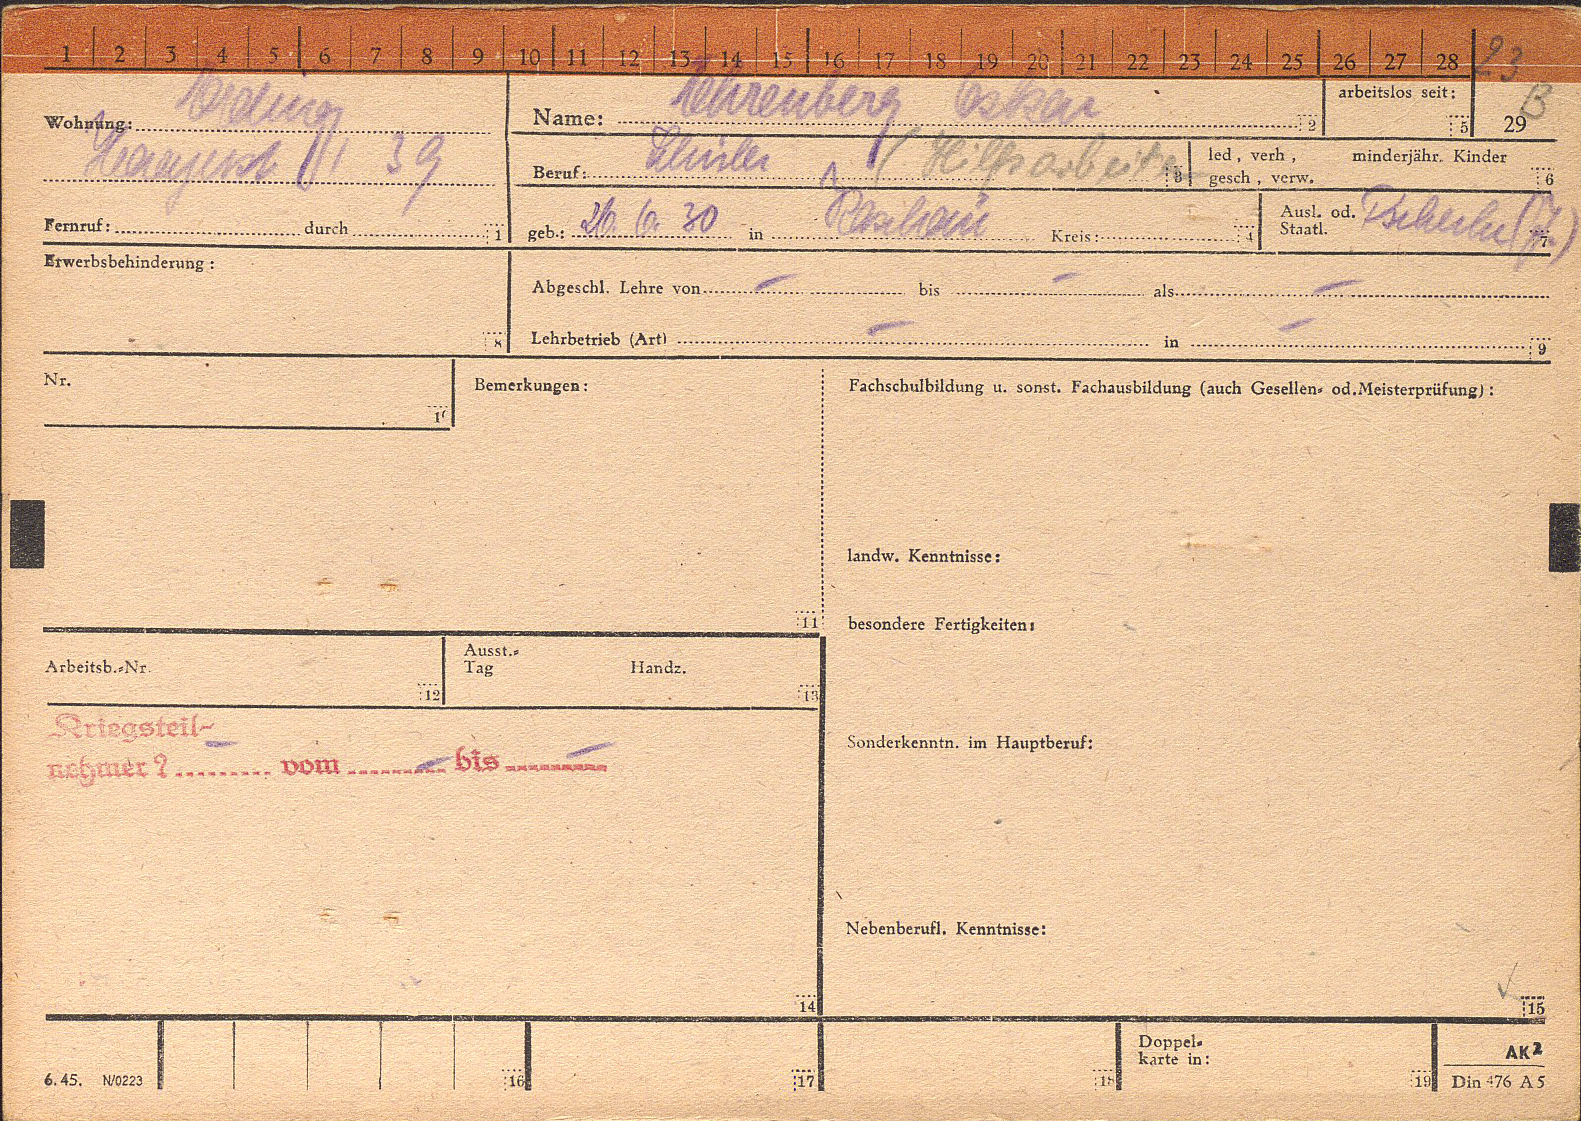 1 2 3 4 5 6 7 8 9 10 11 12 13 14 15 16 17 18 19 20 21 22 23 24 25 26 27 28 23
Wohnung: Erding
39
Name: Ehrenberg Oskar 2
arbeitslos seit: 5
B
29
Beruf: Schüler / Hilfsarbeiter 3
led, verh, minderjähr. Kinder
gesch, verw. 6
Fernruf: durch 1
geb.: 26. 6. 30 in Kreis: 4
Ausl. od.
Staatl. 7
Erwerbsbehinderung:
8
Abgeschl. Lehre von – bis – als –
Lehrbetrieb (Art) – in – 9
Nr.
10
Bemerkungen:
11
Fachschulbildung u. sonst. Fachausbildung (auch Gesellen- od. Meisterprüfung):
landw. Kenntnisse:
besondere Fertigkeiten:
Arbeitsb.-Nr. 12
Ausst.-
Tag Handz. 13
Kriegsteil-
nehmer? – vom – bis –
Sonderkenntn. im Hauptberuf:
Nebenberufl. Kenntnisse:
14
15
6. 45. N/0223
16
17
18
Doppel-
karte in:
19
AK2
Din 476 A 5